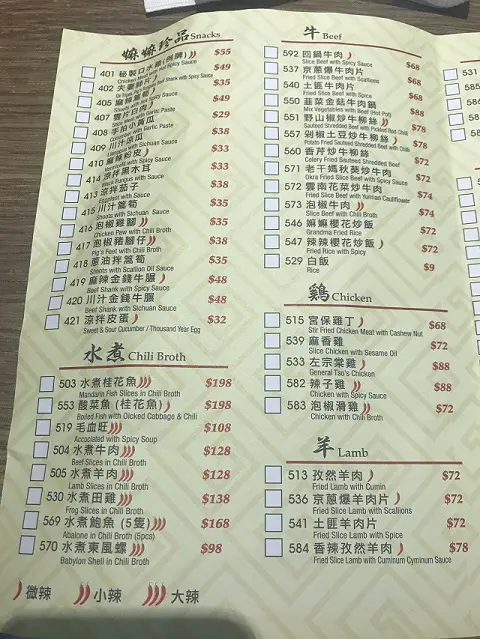 嫲嫲珍品 Snacks
401 秘製口水雞(例牌) $55
Chicken Meat with Hot Spicy Sauce
402 夫妻肺片 $49
405 麻辣鴨 $35
407 雲片白肉 $49
408 手拍小黃瓜 $29
with Garlic Paste
409 川汁涼瓜 $38
with Sichuan Sauce
410 麻辣粉皮 $33
with Spicy Sauce
414 涼拌黑木耳 $33
Black Fungus with Sauce
413 涼拌茄子 $38
Eggplant with Sauce
415 川汁萵筍 $35
Shoots with Sichuan Sauce
416 泡椒雞腳 $35
Chicken Paw with Chili Broth
417 泡椒豬腳仔 $38
Pig's Feet with Chili Broth
418 蔥油拌萵筍 $35
Shoots with Scallion Oil Sauce
419 麻辣金錢牛𦟌 $48
Beef Shank with Spicy Sauce
420 川汁金錢牛𦟌 $48
Beef Shank with Sichuan Sauce
421 涼拌皮蛋 $32
Sweet & Sour Cucumber / Thousand Year Egg
水煮 Chili Broth
503 水煮桂花魚 $198
Mandarin Fish Slices in Chili Broth
553 酸菜魚 (桂花魚) $198
Boiled Fish with Dicked Cabbage & Chili
519 毛血旺 $108
Accociated with Spicy Soup
504 水煮牛肉 $128
Beef Slices in Chili Broth
505 水煮羊肉 $128
Lamb Slices in Chili Broth
530 水煮田雞 $138
Frog Slices in Chili Broth
569 水煮鮑魚 (5隻) $168
Abalone in Chili Broth (5pcs)
570 水煮東風螺 $98
Babylon Shell in Chili Broth
微辣 小辣 大辣
牛 Beef
592 回鍋牛肉 $68
Slice Beef with Spicy Sauce
537 京蔥爆牛肉片 $68
Fried Slice Beef with Scallions
540 土匪牛肉片 $68
Fried Slice Beef with Spice
550 韮菜金菇牛肉鍋 $88
Mix Vegetables with Beef (Hot Pot)
551 野山椒炒牛柳絲 $78
Sauteed Shredded Beef with Pickled Red Chili
557 剁椒土豆炒牛柳絲 $78
Potato Fried Sauteed Shredded Beef with Chili
560 香芹炒牛柳絲 $72
Celery Fried Sauteed Shredded Beef
571 老干媽秋葵炒牛肉 $72
Okra Fried Slice Beef with Spicy Sauce
572 雲南花菜炒牛肉 $74
Fried Slice Beef with Yunnan Cauliflower
573 泡椒牛肉 $74
Slice Beef with Chili Broth
546 嫲嫲櫻花炒飯 $72
Grandma Fried Rice
547 辣辣櫻花炒飯 $72
Fried Rice with Spicy
529 白飯 $9
Rice
鷄 Chicken
515 宮保雞丁 $68
Stir Fried Chicken Meat with Cashew Nut
539 麻香雞 $72
Slice Chicken with Sesame Oil
533 左宗棠雞 $88
General Tso's Chicken
582 辣子雞 $88
Chicken with Spicy Sauce
583 泡椒滑雞 $72
Chicken with Chili Broth
羊 Lamb
513 孜然羊肉 $72
Fried Lamb with Cumin
536 京蔥爆羊肉片 $72
Fried Slice Lamb with Scallions
541 土匪羊肉片 $72
Fried Slice Lamb with Spice
584 香辣孜然羊肉 $78
Fried Slice Lamb with Cuminum Cyminum Sauce
531
585